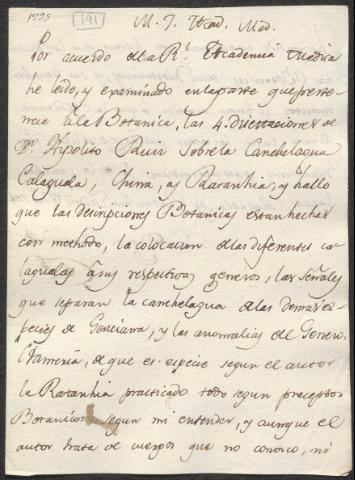 1795 191 M. I. Acad. Med.
Por acuerdo de la Rl. Academia Medica
he leido, y examinado en la parte que perte-
nece a la Botanica, las 4. Disertaciones de
Dn. Hipolito Ruiz sobre la Canchelagua
Calaguala, China, y Raranhia; y hallo
que las descripciones Botanicas estan hechas
con methodo, la colocacion de las diferentes ca
lagualas a sus respectivos generos, las señales
que separan la canchelagua de las demas es-
pecies de Genciana, y las anomalias del Genero
Krameria, de que es especie segun el autor
la Ratanhia practicado todo segun preceptos
Botanicos segun mi entender, y aunque el
autor trata de cuerpos que no conosco, ni